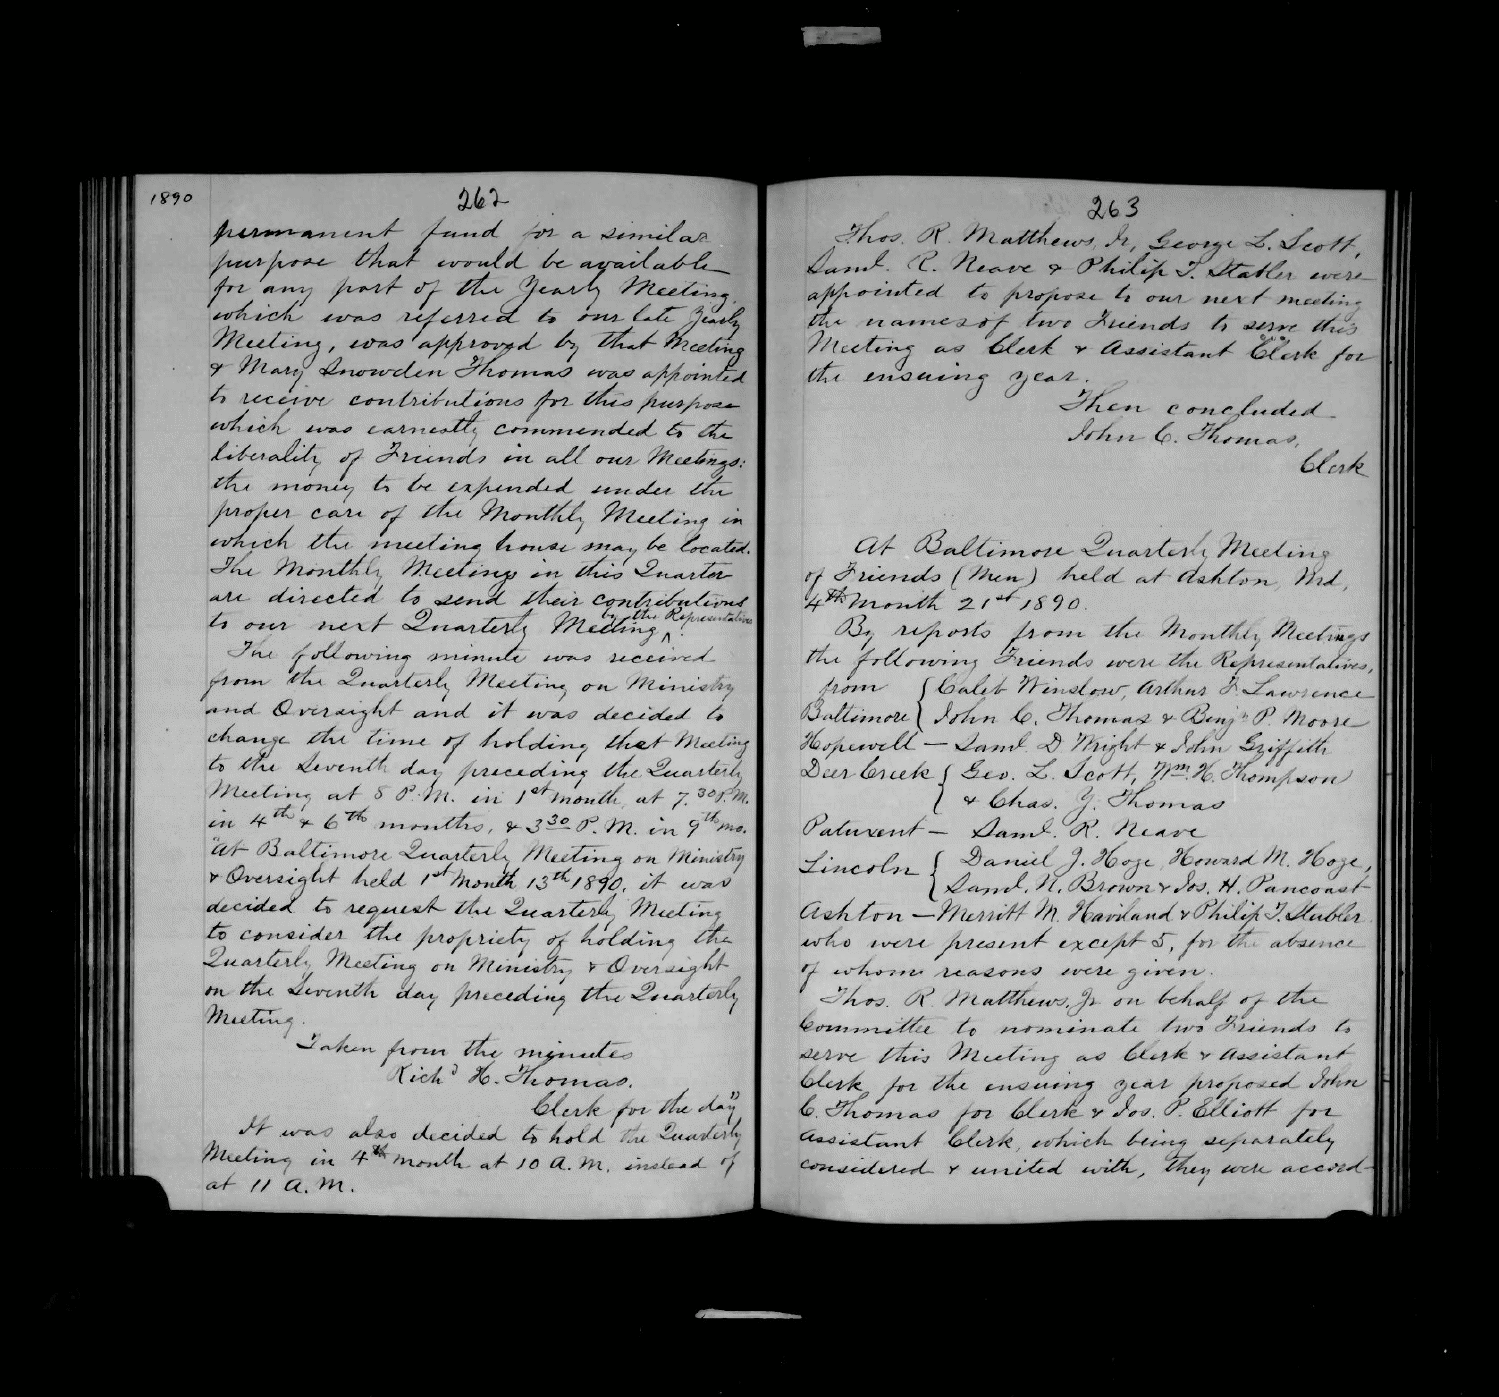 1890
262
permanent fund for a similar
purpose that would be available
for any part of the Yearly Meeting,
which was referred to our late Yearly
Meeting, was approved by that Meeting
& Mary Snowden Thomas was appointed
to receive contributions for this purpose
which was earnestly commended to the
liberality of Friends in all our Meetings:
the money to be expended under the
proper care of the Monthly Meeting in
which the meeting house may be located.
The Monthly Meetings in this Quarter
are directed to send their contributions
to our next Quarterly Meeting ^ by the Representatives.
The following minute was received
from the Quarterly Meeting on Ministry
and Oversight and it was decided to
change the time of holding that Meeting
to the Seventh day preceding the Quarterly
Meeting at 8 P.M. in 1st month, at 7.30 P.M.
in 4th & 6th months, & 3 30 P.M. in 9th mo.
"At Baltimore Quarterly Meeting on Ministry
& Oversight held 1st Month 13th 1890, it was
decided to request the Quarterly Meeting
to consider the propriety of holding the
Quarterly Meeting on Ministry & Oversight
on the Seventh day preceding the Quarterly
Meeting.
Taken from the minutes
Richd H. Thomas.
Clerk for the day"
It was also decided to hold the Quarterly
Meeting in 4th month at 10 A.M. instead of
at 11 A.M.
263
Thos. R. Matthews, Jr, George L. Scott,
Saml. R. Neave & Philip T. Stabler were
appointed to propose to our next meeting
the names of two Friends to serve this
Meeting as Clerk & Assistant Clerk for
the ensuing year.
Then concluded
John C. Thomas,
Clerk
At Baltimore Quarterly Meeting
of Friends (Men) held at Ashton, Md,
4th Month 21st 1890.
By reports from the Monthly Meetings
the following Friends were the Representatives,
from { Caleb Winslow, Arthur F. Lawrence
Baltimore { John C. Thomas & Benjn P. Moore
Hopewell — Saml. D. Wright & John Griffith
Deer Creek { Geo. L. Scott, Wm. H. Thompson
& Chas. Y. Thomas
Patuxent — Saml. R. Neave
Lincoln { Daniel J. Hoge, Howard M. Hoge,
Saml. N. Brown & Jos. H. Pancoast
Ashton — Merritt M. Haviland & Philip T. Stabler
who were present except 5, for the absence
of whom reasons were given.
Thos. R. Matthews, Jr on behalf of the
Committee to nominate two Friends to
serve this Meeting as Clerk & Assistant
Clerk for the ensuing year proposed John
C. Thomas for Clerk & Jos. P. Elliott for
Assistant Clerk, which being separately
considered & united with, they were accord-